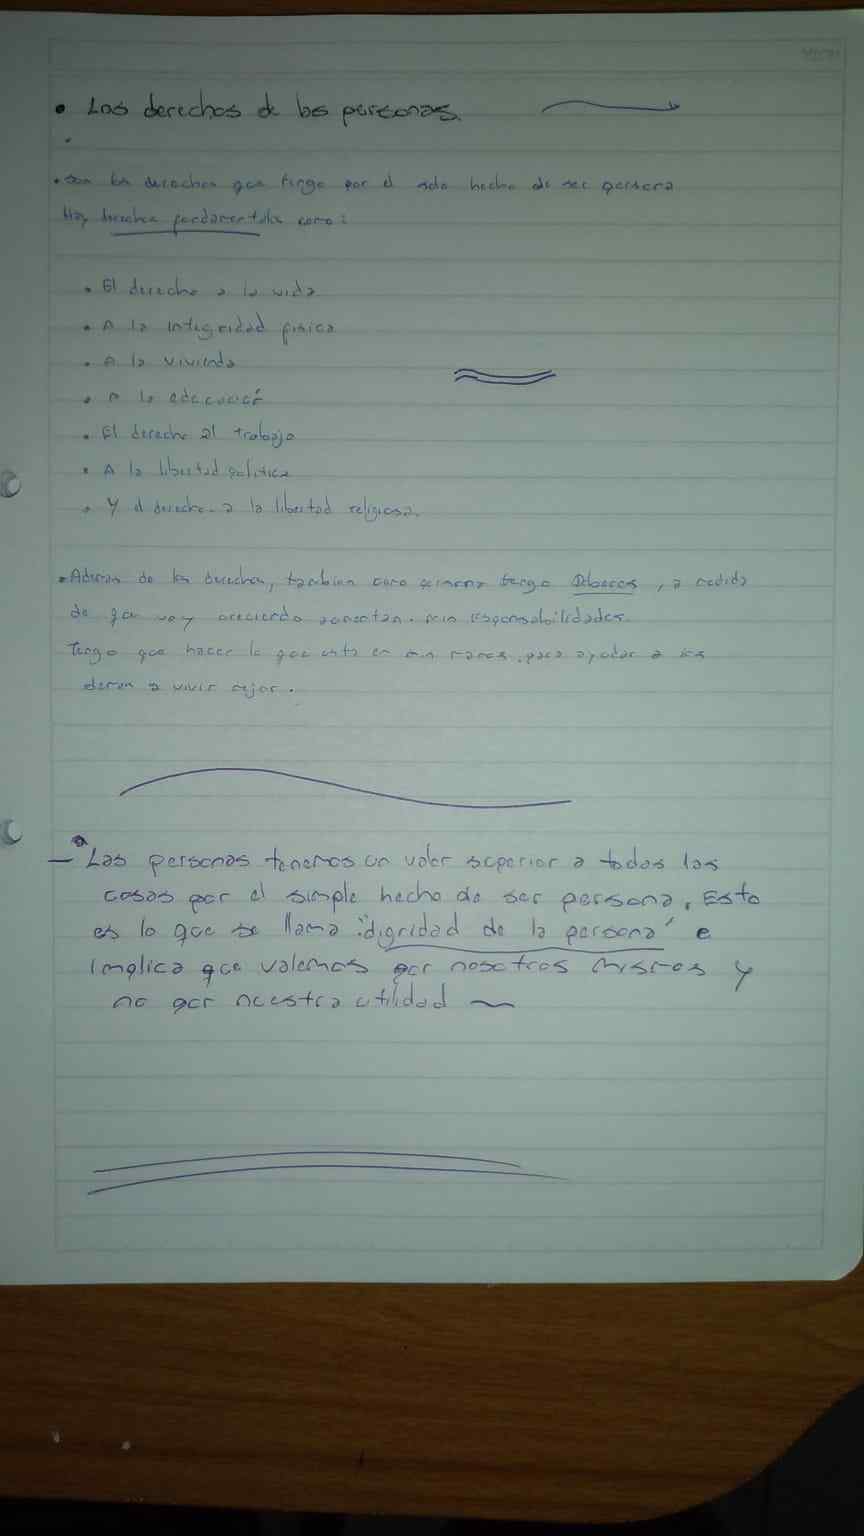 • Los derechos de las personas.
• Son los derechos que tengo por el solo hecho de ser persona
Hay derechos fundamentales como:
• El derecho a la vida
• A la integridad física
• A la vivienda
• A la educación
• El derecho al trabajo
• A la libertad política
• Y el derecho a la libertad religiosa.
• Ademas de los derechos, tambien como persona tengo Deberes, a medida
de que voy creciendo aumentan mis responsabilidades.
Tengo que hacer lo que esta en mis manos para ayudar a los
demas a vivir mejor.
– Las personas tenemos un valor superior a todas las
cosas por el simple hecho de ser persona. Esto
es lo que se llama "dignidad de la persona" e
implica que valemos por nosotros mismos y
no por nuestra utilidad